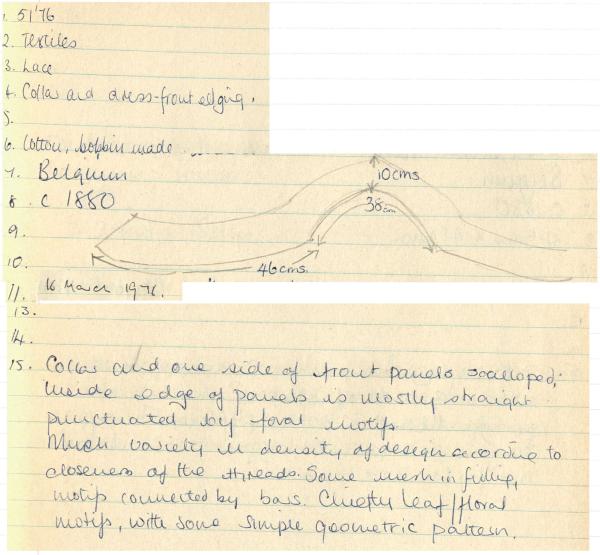 1. 51'76
2. Textiles
3. Lace
4. Collar and dress-front edging.
5.
6. Cotton, bobbin made
7. Belgium
8. c 1880
10cms
38cm
9.
10.
46cms.
11. 16 March 1976.
13.
14.
15. Collar and one side of front panels scalloped;
inside edge of panels is mostly straight
punctuated by floral motifs.
Much variety in density of design according to
closeness of the threads. Some mesh in filling,
motifs connected by bars. Chiefly leaf/floral
motifs, with some simple geometric pattern.